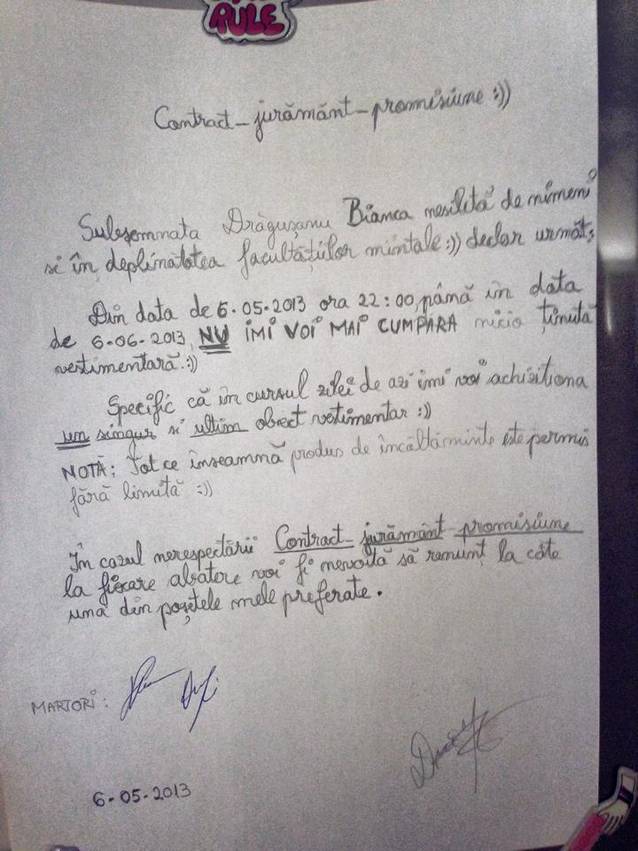 RULE
Contract_jurământ_promisiune :))
Subsemnata Drăgușanu Bianca nesilită de nimeni
si în deplinătatea facultățiilor mintale :)) declar următ;
Din data de 6.05.2013 ora 22:00, până în data
de 6-06-2013, NU IMI VOI MAI CUMPARA nicio ținută
vestimentară.:))
Specific că în cursul zilei de azi imi voi achizitiona
un singur si ultim obect vestimentar :))
NOTĂ: Tot ce înseamnă produs de încăltăminte este permis
fără limită :))
În cazul nerespectării Contract_jurământ_promisiune
la fiecare abatere voi fi nevoită să renunț la câte
una din poșetele mele preferate.
MARTORI:
6-05-2013